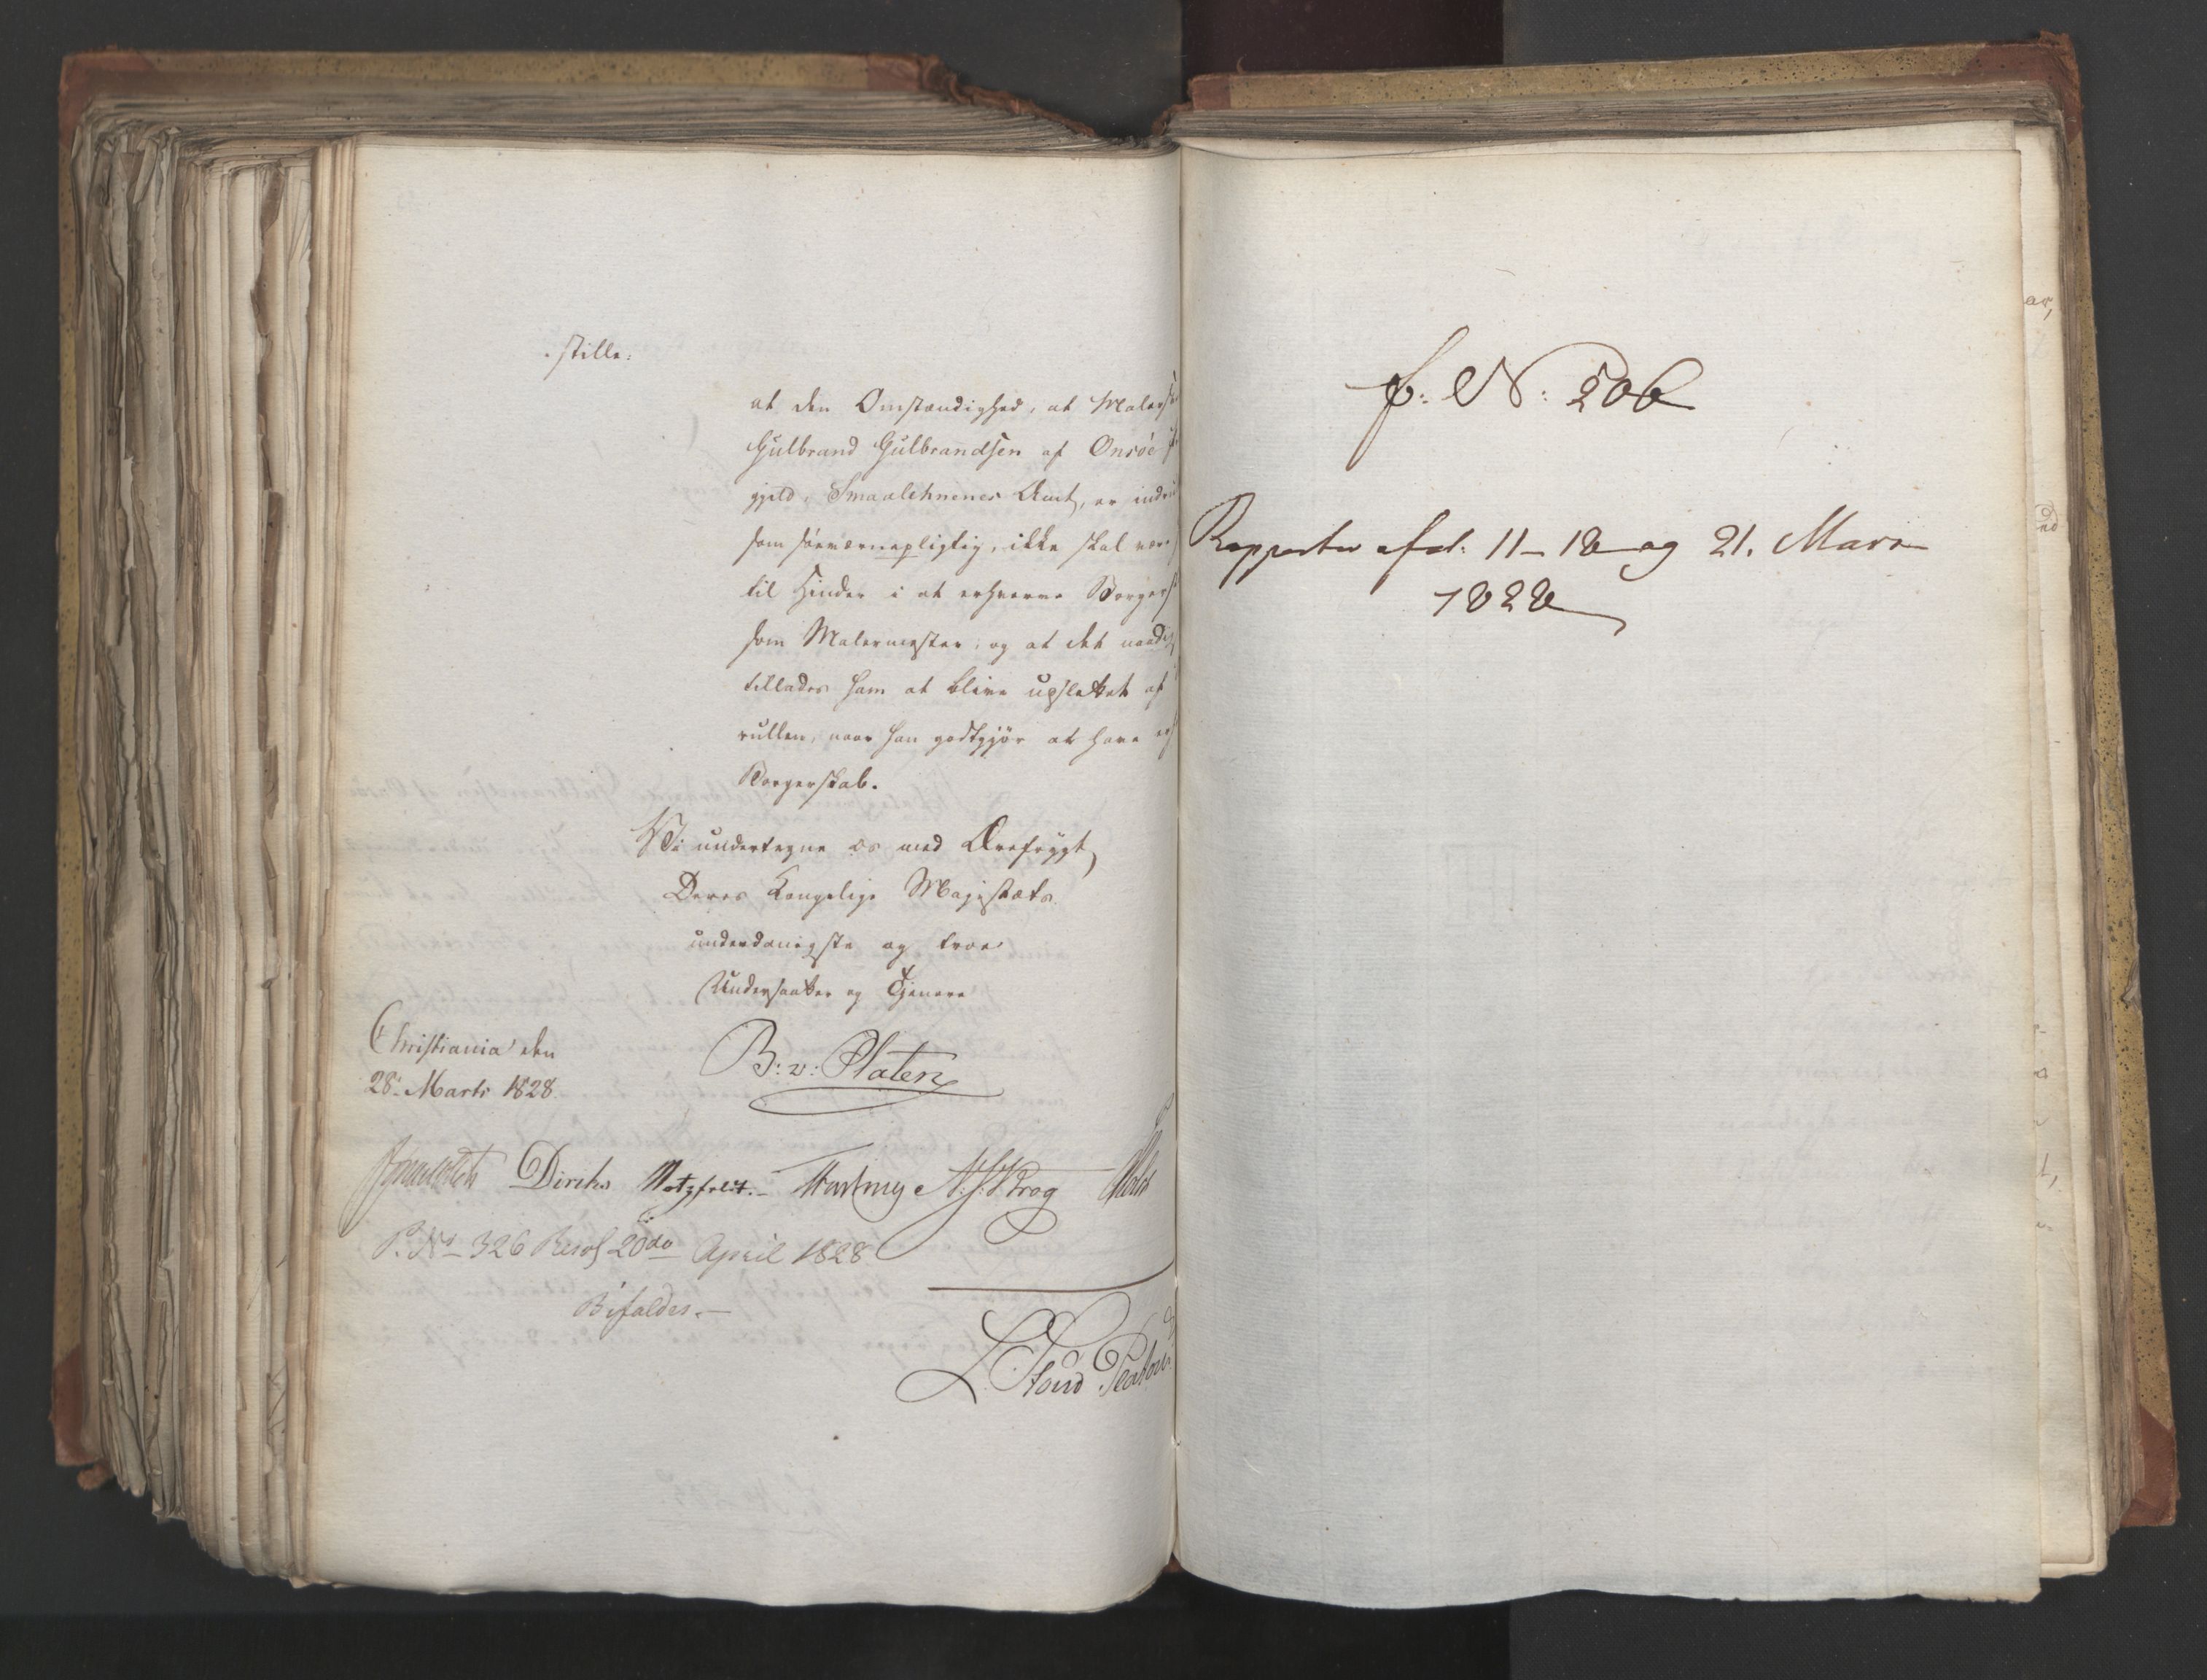 stille:
at den Omstændighed, at Malers
Gulbrand Gulbrandsen af Onsöe
gjeld, Smaalehnenes Amt, er indru
som söeværnepligtig, ikke skal være
til Hinder i at erhverve Borgers
som Malermester; og at det naadi
tillades ham at blive udslettet af
rullen, naar han godtgjör at have
Borgerskab.
Vi undertegne os med Ærefrygt,
Deres Kongelige Majestæts
underdanigste og troe
Undersaatter og Tjenere
Christiania den
28de Marts 1828.
B: v: Platen
Diriks Motzfeldt. N. J. Krog Holst
P. No 326 Resol 20de April 1828
Bifaldes.—
f: N: 206
Rapporter afd: 11– 18 og 21. Mars
1828